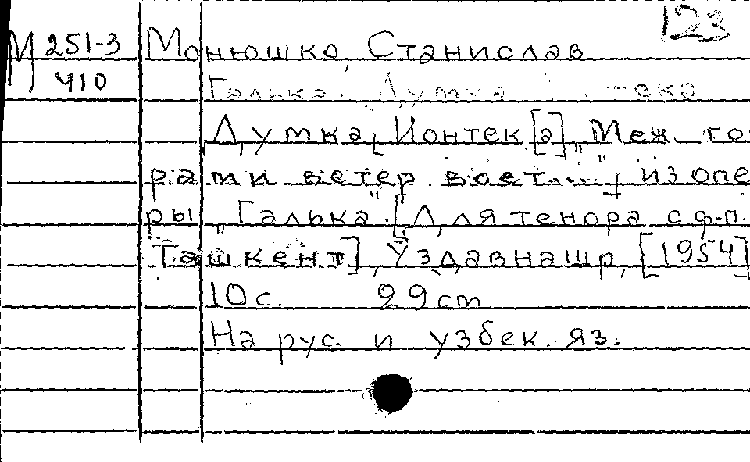 123
М 251-3 Монюшко, Станислав
410 Галька. Думка
Думка Йонтек[а] „Меж го-
рами ветер воет...", из опе-
ры „Галька". [Для тенора с ф-п.
Ташкент], Уздавнашр, [1954]
10 с. 29 cm
На рус. и узбек. яз.